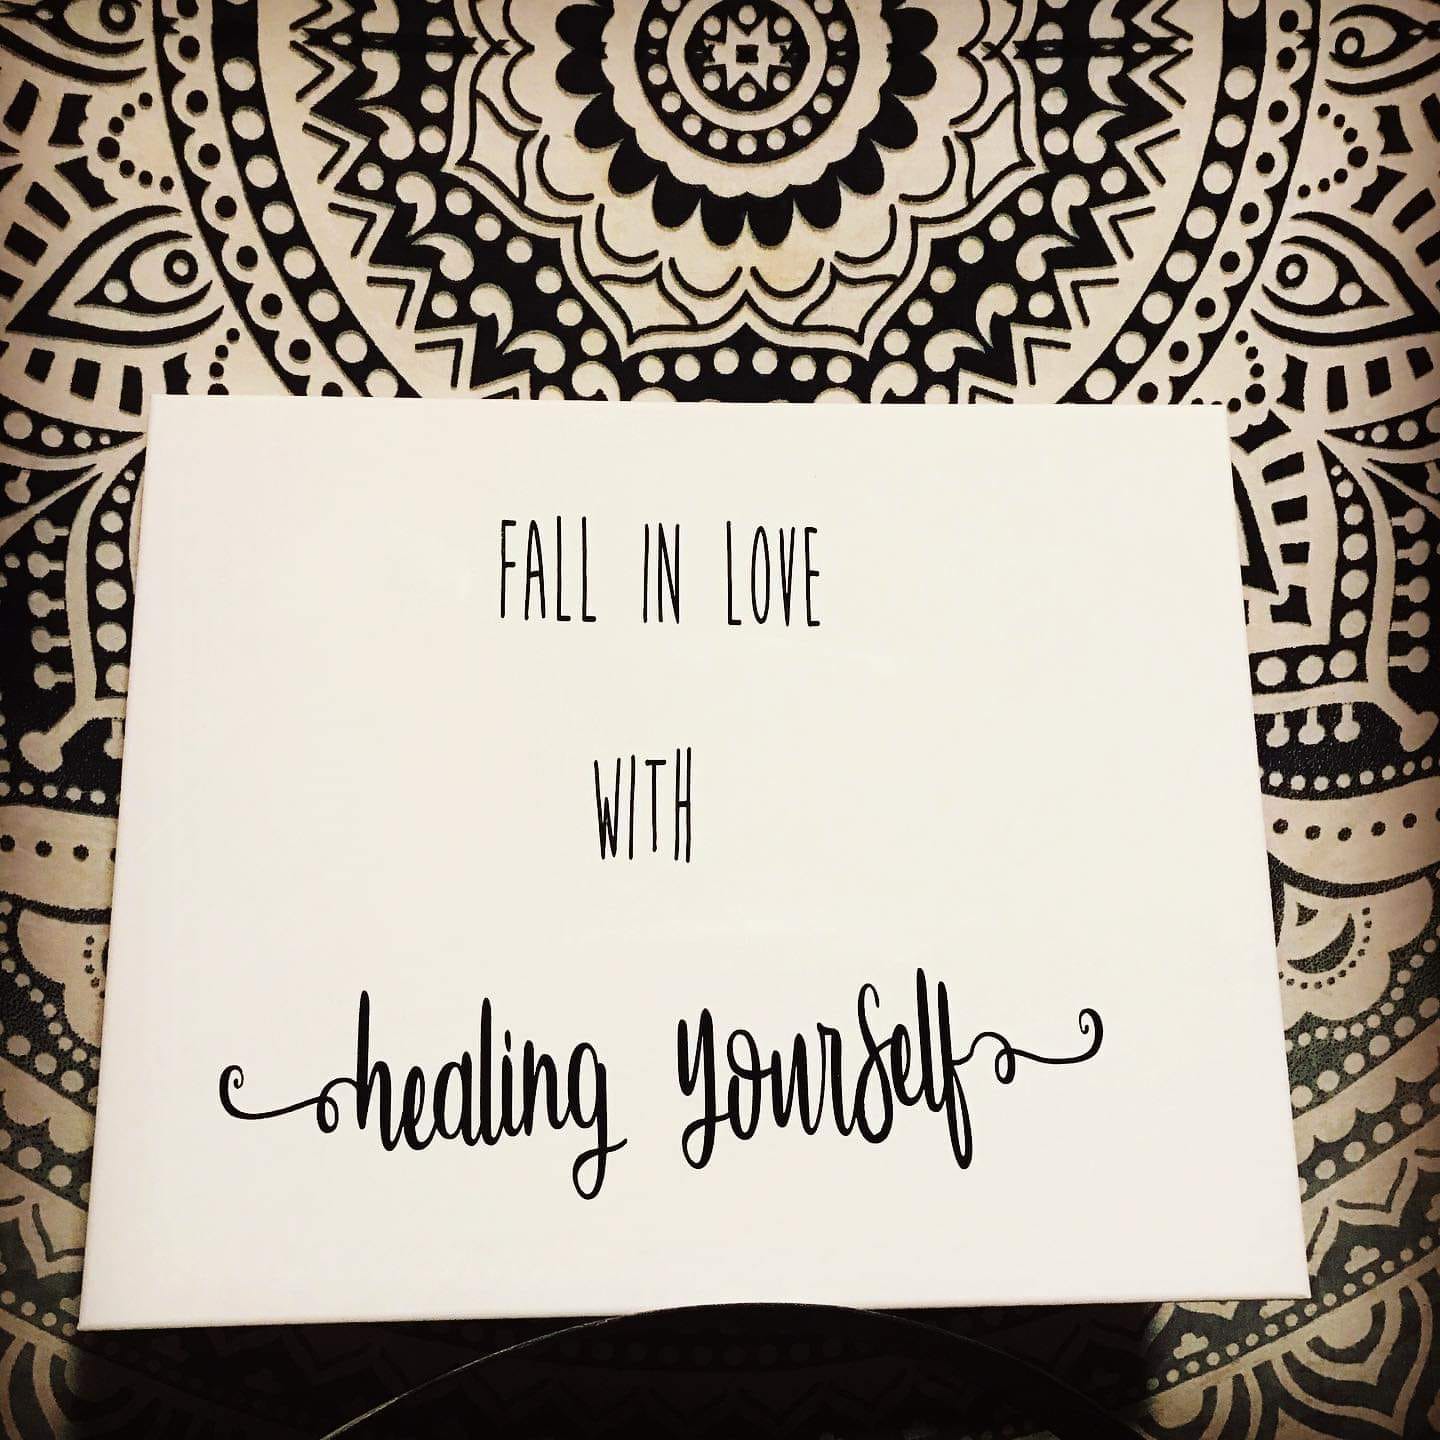 FALL IN LOVE
WITH
healing yourself